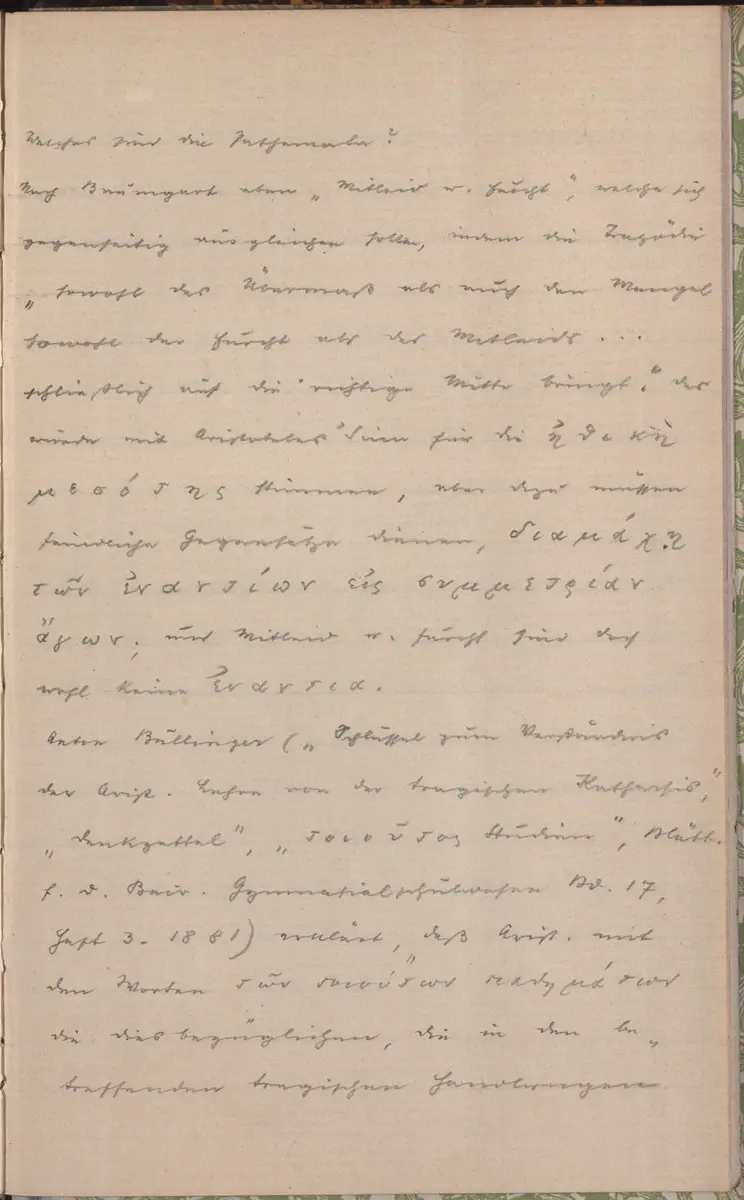 Welches sind die Pathemata?
Nach Baumgart eben „Mitleid u. Furcht“, welche sich
gegenseitig ausgleichen sollen, indem die Tragödie
„sowohl das Übermaß als auch den Mangel
sowohl der Furcht als des Mitleids...
schließlich auf die richtige Mitte bringt.“ Das
würde mit Aristoteles' Sinn für die ἠθικὴ
μεσότης stimmen, aber dazu müssen
feindliche Gegensätze dienen, διαμάχη
τῶν ἐναντίων εἰς συμμετρίαν
ἄγων; und Mitleid u. Furcht sind doch
wohl keine ἐναντία.
Anton Bullinger („Schlüssel zum Verständnis
der Arist. Lehre von der tragischen Katharsis“,
„Denkzettel“, „τοιοῦτος Studien“, Blätt.
f. d. Bair. Gymnasialschulwesen Bd. 17,
Heft 3. 1881) erklärt, daß Arist. mit
den Worten τῶν τοιούτων παθημάτων
die diesbezüglichen, die in den be„
treffenden tragischen Handlungen